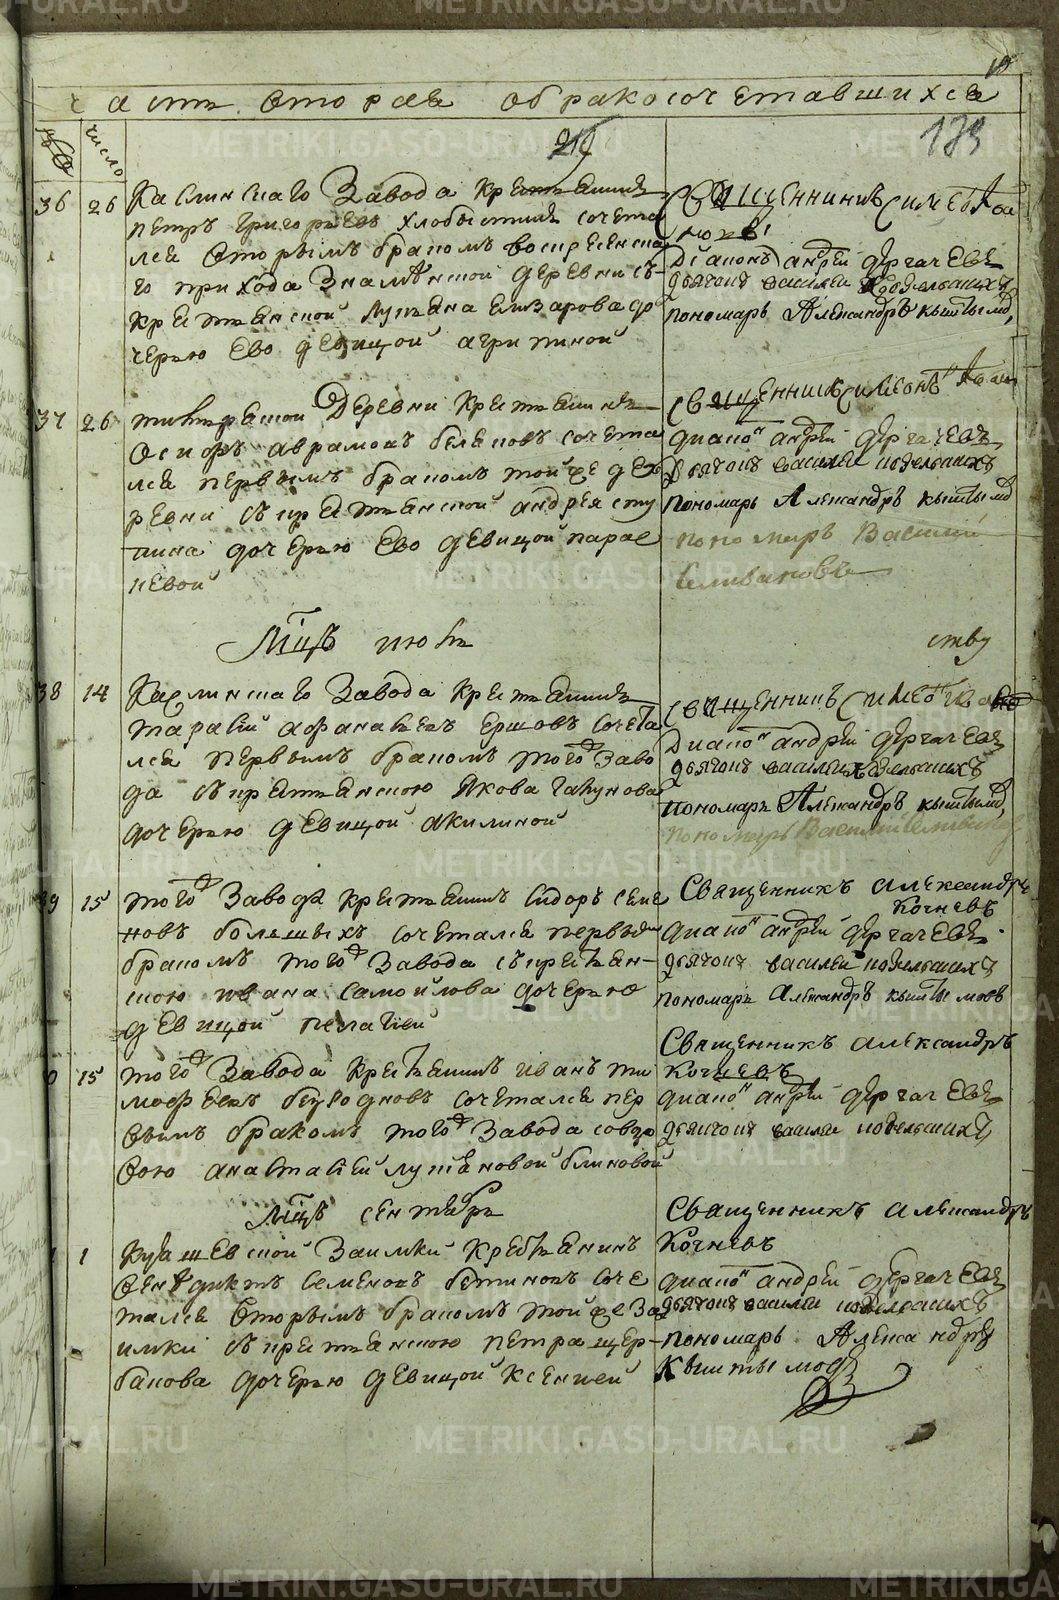 часть вторая о бракосочетавшихся
число
219
139
36 26 Каслинскаго Завода крестьянинъ
петръ григорьевъ хлобыстинъ сочета
лся вторымъ бракомъ воскресенска
го прихода Знаменской деревни съ
крестьянской лукьяна елизарова до
черью ево девицой агрипиной
Священникъ Симеон
Диаконъ андрей дергачевъ
дьячокъ василей подельскихъ
пономарь Александръ кыштымо
37 26 деревни крестьянинъ
осипъ аврамовъ беляковъ сочета
лся первымъ бракомъ той же де
ревни съ крестьянской андрея
дочерью ево девицой парас
кевой
Священникъ Симеонъ
диаконъ андрей дергачевъ
дьячокъ василей подельскихъ
пономарь Александръ кыштымо
пономарь Василий
Селивановъ
Мцъ июль
ству
38 14 Каслинскаго Завода крестьянинъ
тарасий афанасьевъ ершовъ сочета
лся первымъ бракомъ того Заво
да съ крестьянскою Якова гакунова
дочерью девицой акилиной
Священникъ Симеон
Диаконъ андрей дергачевъ
дьячокъ василей подельскихъ
пономарь Александръ кыштымо
пономарь Василий Селиванов
39 15 того Завода крестьянинъ Сидоръ семе
новъ большихъ сочетался первым
бракомъ того Завода съ крестьян-
скою ивана самойлова дочерью
девицой пелагией
Священникъ александръ
Кочневъ
диаконъ андрей дергачевъ
дьячокъ василей подельскихъ
пономарь александръ кыштымовъ
15 того Завода крестьянинъ иванъ ти
мофеевъ безгодновъ сочетался пер
вымъ бракомъ того Завода со вдо
вою анастасией лукьяновой блиновой
Священникъ александръ
Кочневъ
диаконъ андрей дергачевъ
дьячокъ василей подельскихъ
Мцъ сентябрь
1 1 Куяшевской Заимки крестьянинъ
венедиктъ семеновъ бетиновъ соче
тался вторымъ бракомъ той же За
имки съ крестьянскою петра щер-
бакова дочерью девицой ксенией
Священникъ александръ
Кочневъ
диаконъ андрей дергачевъ
дьячокъ василей подельскихъ
пономарь Александръ
Кыштымовъ